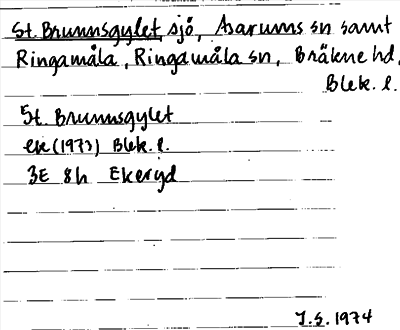 St. Brunnsgylet, sjö, Asarums sn samt
Ringamåla, Ringamåla sn, Bräkne hd,
Blek. l.
St. Brunnsgylet
ek (1973) Blek. l.
3E 8h Ekeryd
J.S. 1974